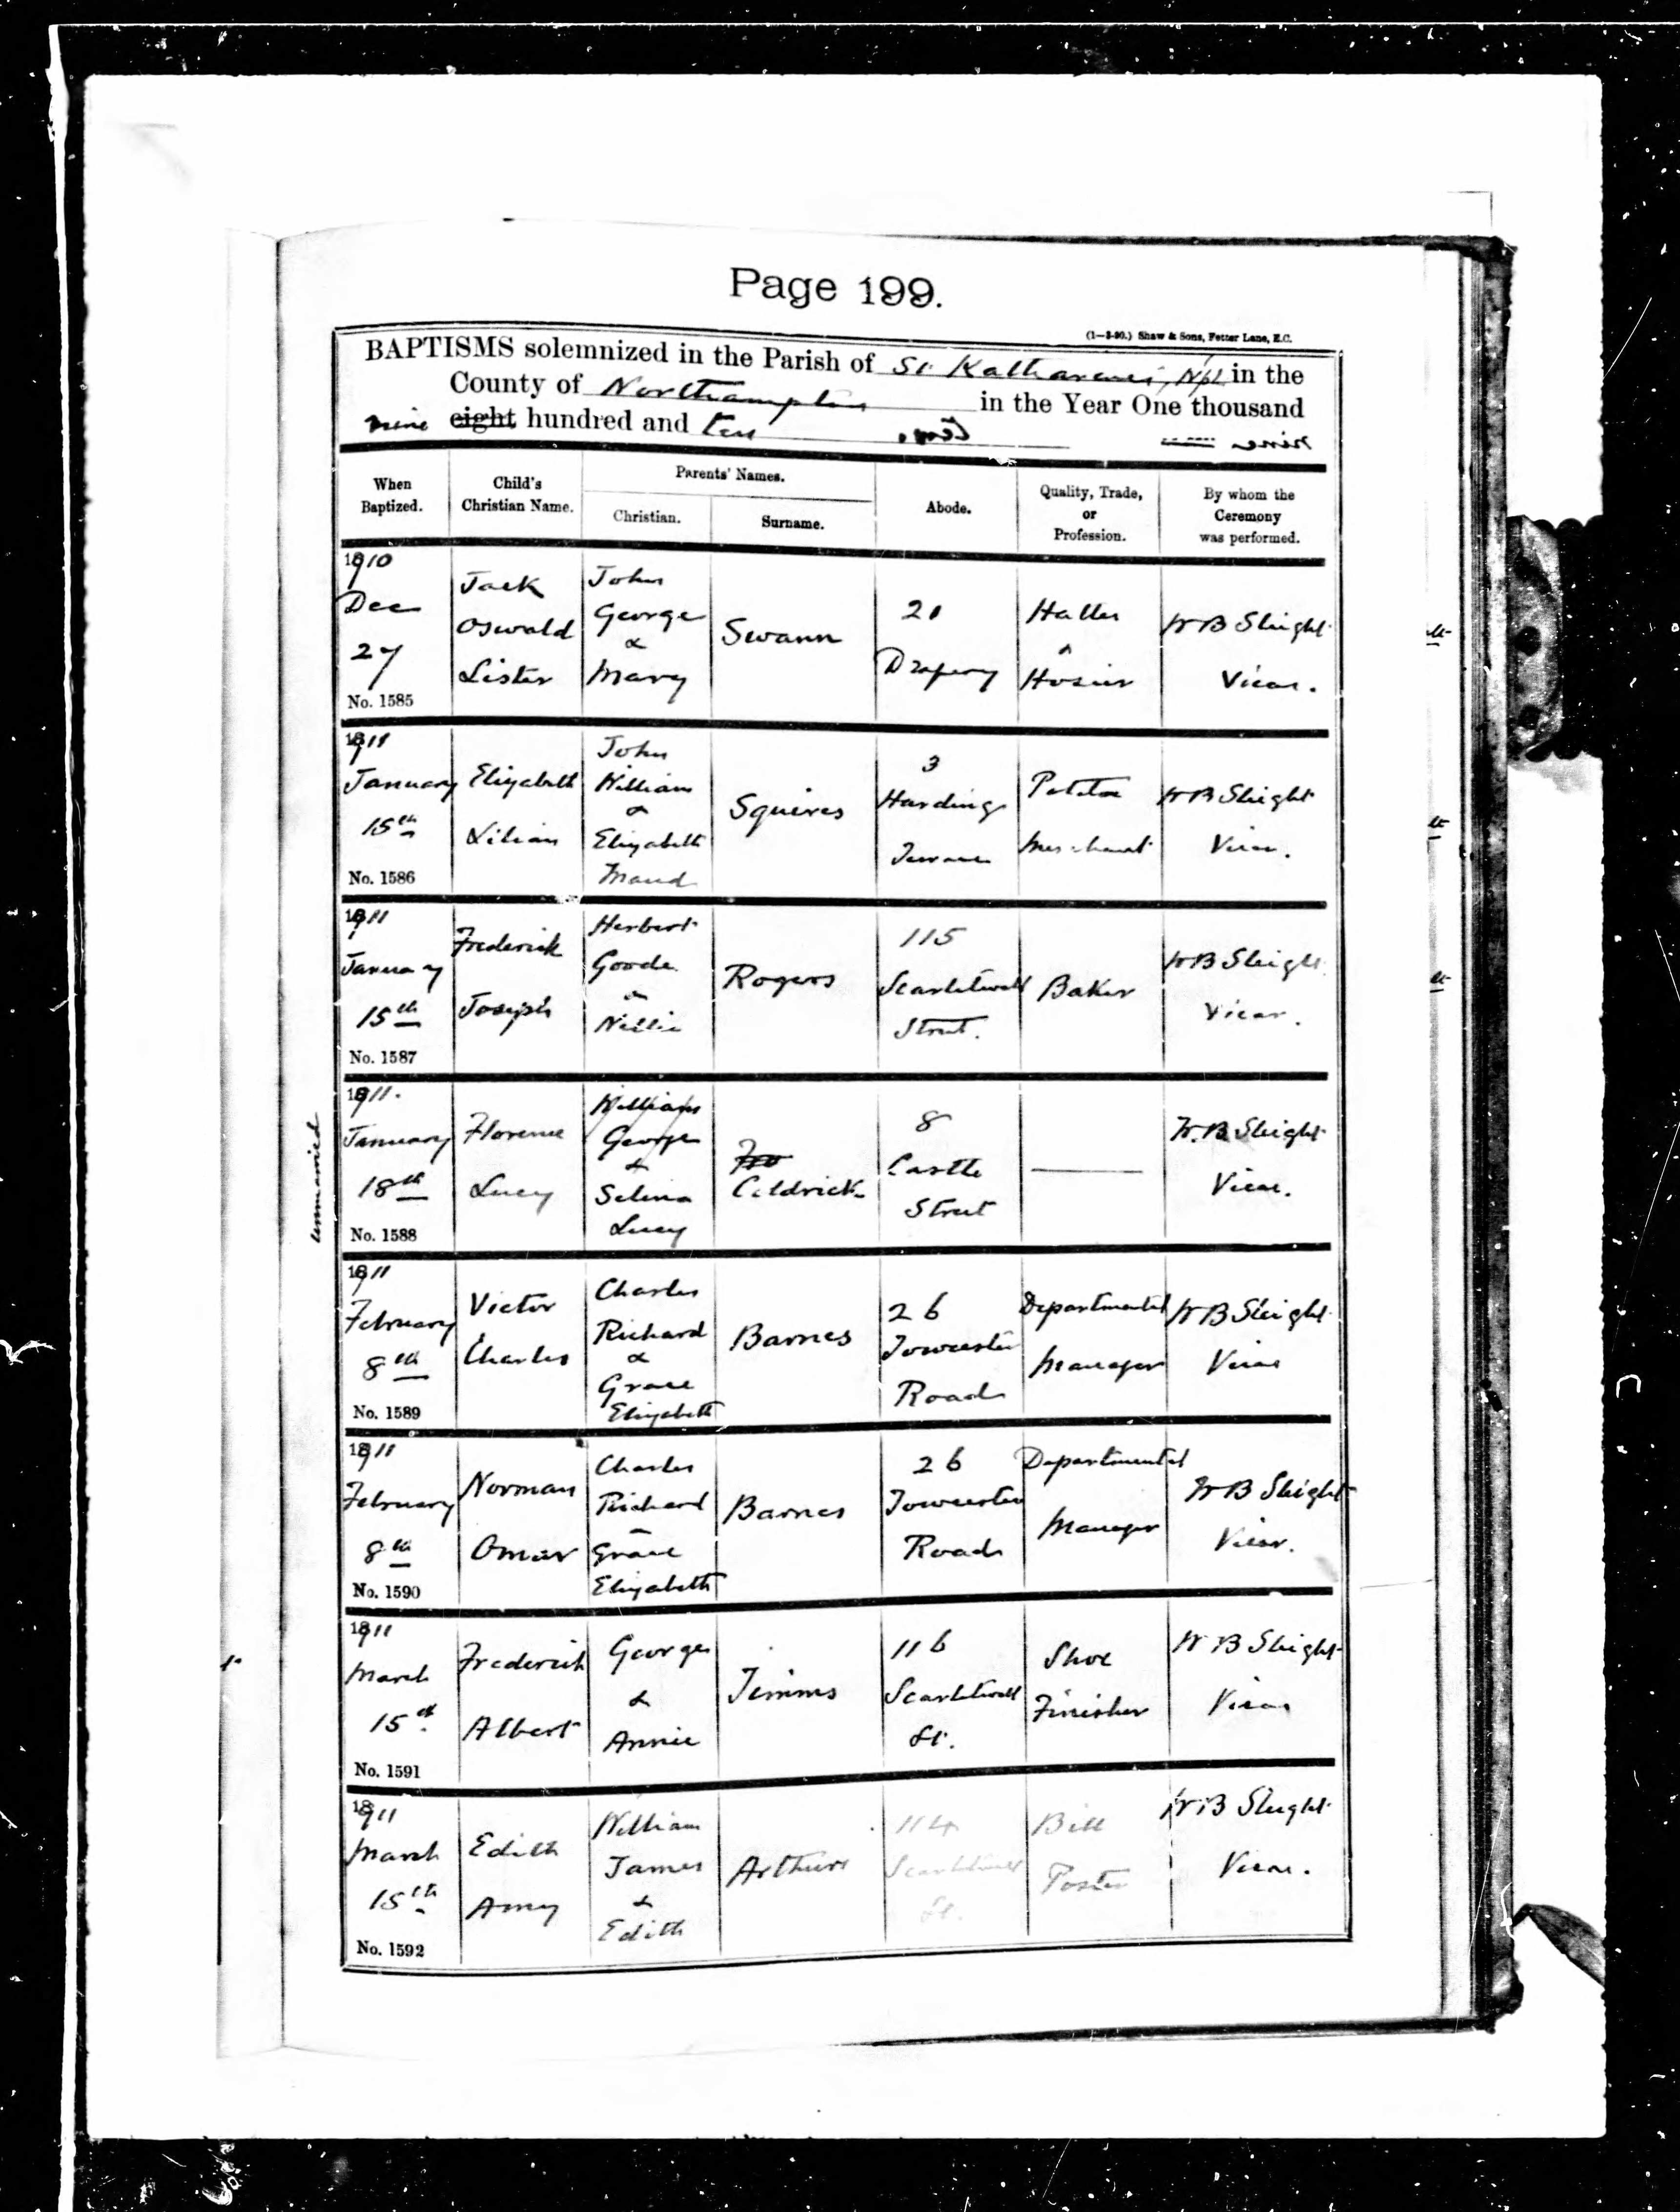 Page 199.
(1—3-90.) Shaw & Sons, Fetter Lane, E.C.
BAPTISMS solemnized in the Parish of St. Katharines, Npt. in the
County of Northampton in the Year One thousand
nine eight hundred and ten
When Baptized.
Child's Christian Name.
Parents' Names.
Christian.
Surname.
Abode.
Quality, Trade, or Profession.
By whom the Ceremony was performed.
1910
Dec
27
No. 1585
Jack
Oswald
Lister
John
George
&
Mary
Swann
Drapery
Hatter
&
Hosier
W B Sleight
Vicar.
1911
January
15th
No. 1586
Elizabeth
Lilian
John
William
&
Elizabeth
Maud
Squires
3
Hardings
Terrace
Potatoe
Merchant
W B Sleight
Vicar.
1911
January
15th
No. 1587
Frederick
Joseph
Herbert
Goode
&
Nellie
Rogers
115
Scarletwell
Street.
Baker
W B Sleight
Vicar.
unmarried
1911.
January
18th
No. 1588
Florence
Lucy
William
George
&
Selina
Lucy
Coldrick
8
Castle
Street
W. B. Sleight
Vicar.
1911
February
8th
No. 1589
Victor
Charles
Charles
Richard
&
Grace
Elizabeth
Barnes
26
Towcester
Road
Departmental
Manager
W B Sleight
Vicar
1911
February
8th
No. 1590
Norman
Omar
Charles
Richard
&
Grace
Elizabeth
Barnes
26
Towcester
Road
Departmental
Manager
W B Sleight
Vicar.
1911
March
15th
No. 1591
Frederick
Albert
George
&
Annie
Timms
116
Scarletwell
St.
Shoe
Finisher
W B Sleight
Vicar
1911
March
15th
No. 1592
Edith
Amy
William
James
&
Edith
Arthurs
114
Scarletwell
St.
Bill
Poster
W B Sleight
Vicar.